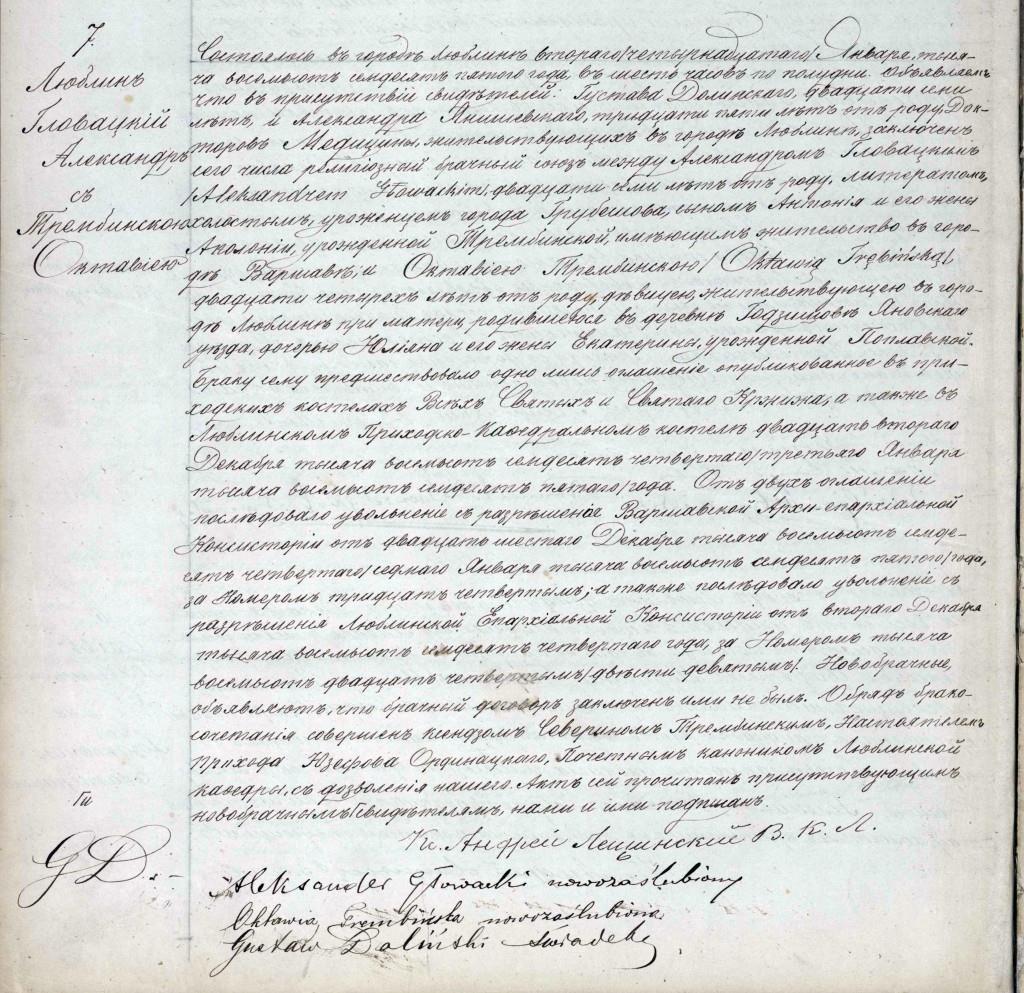 7.
Люблинъ
Гловацкій
Александръ
съ
Трембинскою
Октавіею
Состоялось въ городѣ Люблинѣ втораго/четырнадцатаго/ Января, тыся-
ча восемьсотъ семдесятъ пятаго года, въ шесть часовъ по полудни. Объявляемъ
что въ присутствіи свидѣтелей: Густава Долинскаго, двадцати семи
лѣтъ, и Александра Янишевскаго, тридцати пяти лѣтъ отъ роду, Док-
торовъ Медицины, жительствующихъ въ городѣ Люблинѣ, заключенъ
сего числа религіозный брачный союзъ между Александромъ Гловацкимъ
/Aleksandrem Głowackim/, двадцати семи лѣтъ отъ роду, литератомъ,
холостымъ, урожѣнцемъ города Грубешова, сыномъ Антонія и его жены
Аполоніи, урожденной Трембинской, имѣющимъ жительство въ горо-
дѣ Варшавѣ; и Октавіею Трембинскою /Oktawią Trębińską/,
двадцати четырехъ лѣтъ отъ роду, дѣвицею, жительствующею въ горо-
дѣ Люблинѣ при матери, родившеюся въ деревнѣ Годзишовѣ Яновскаго
уѣзда, дочерью Юліяна и его жены Екатерины, урожденной Поплавской.
Браку сему предшествовало одно лишь оглашеніе опубликованное въ при-
ходскихъ костелахъ Всѣхъ Святыхъ и Святаго Крижа, а также въ
Люблинскомъ Приходско-Кафедральномъ костелѣ двадцать втораго
Декабря тысяча восемьсотъ семдесятъ четвертаго/третьяго Января
тысяча восемьсотъ семдесятъ пятаго/года. Отъ двухъ оглашеніи
послѣдовало увольненіе съ разрѣшенія Варшавской Архи-епархіальной
Консисторіи отъ двадцать шестаго Декабря тысяча восемьсотъ семде-
сятъ четвертаго/седмаго Января тысяча восемьсотъ семдесятъ пятого/года,
за Номеромъ тридцать четвертымъ; а также послѣдовало уволненіе съ
разрѣшенія Люблинской Епархіальной Консисторіи отъ втораго Декабря
тысяча восемьсотъ семдесятъ четвертаго года, за Номеромъ тысяча
восемьсотъ двадцать четвертымъ/двѣсти девятымъ/. Новобрачные,
объявляютъ, что брачный договоръ заключенъ ими не былъ. Обрядъ брако-
сочетанія совершенъ ксендзомъ Севериномъ Трембинскимъ, Настоятелемъ
прихода Юзефова Ординацкаго, Почетнымъ каноникомъ Люблинской
кафедры, съ дозволенія нашего. Актъ сей прочитанъ присутствующимъ
новобрачнымъ и свидѣтелямъ, нами и ими подписанъ.
Кс. Андрей Лещинскій В. К. Л.
GD.
Aleksander Głowacki nowozaślubiony
Oktawia Trembińska nowozaślubiona
Gustaw Doliński świadek